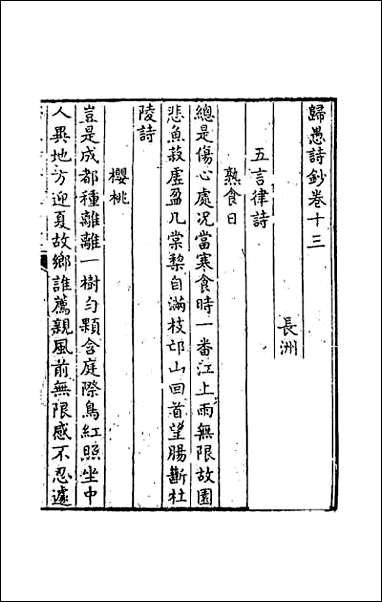 歸愚詩鈔卷十三
長洲
五言律詩
熟食日
總是傷心處况當寒食時一番江上雨無限故園
悲魚菽虛盈几棠梨自滿枝邙山回首望腸斷杜
陵詩
櫻桃
豈是成都種離離一樹勻顆含庭際鳥紅照坐中
人異地方迎夏故鄉誰薦親風前無限感不忍遽